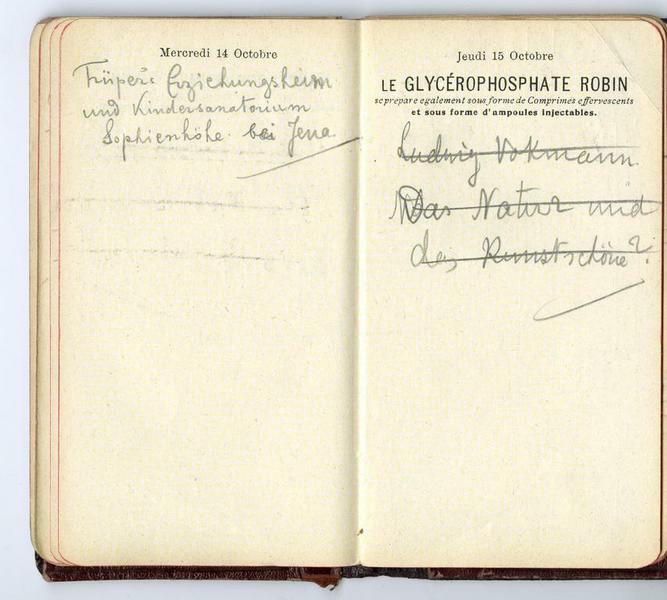 Mercredi 14 Octobre
Trüper's Erziehungsheim
und Kindersanatorium
Sophienhöhe bei Jena
Jeudi 15 Octobre
LE GLYCÉROPHOSPHATE ROBIN
se prépare également sous forme de Comprimés effervescents
et sous forme d'ampoules injectables.
Ludwig Volkmann.
Das Natur und
das Kunstschöne?